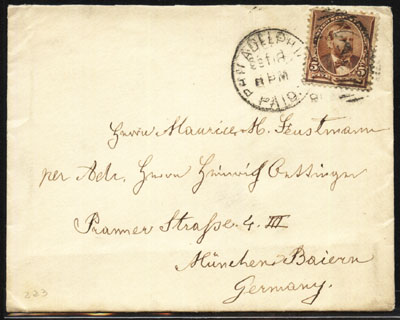 PHILADELPHIA
8 PM
PA
5
Herrn Maurice M. Feustmann
per Adr. Herrn Heinrich Oettinger
Pranner Strasse 4 III
München Baiern
Germany.
223